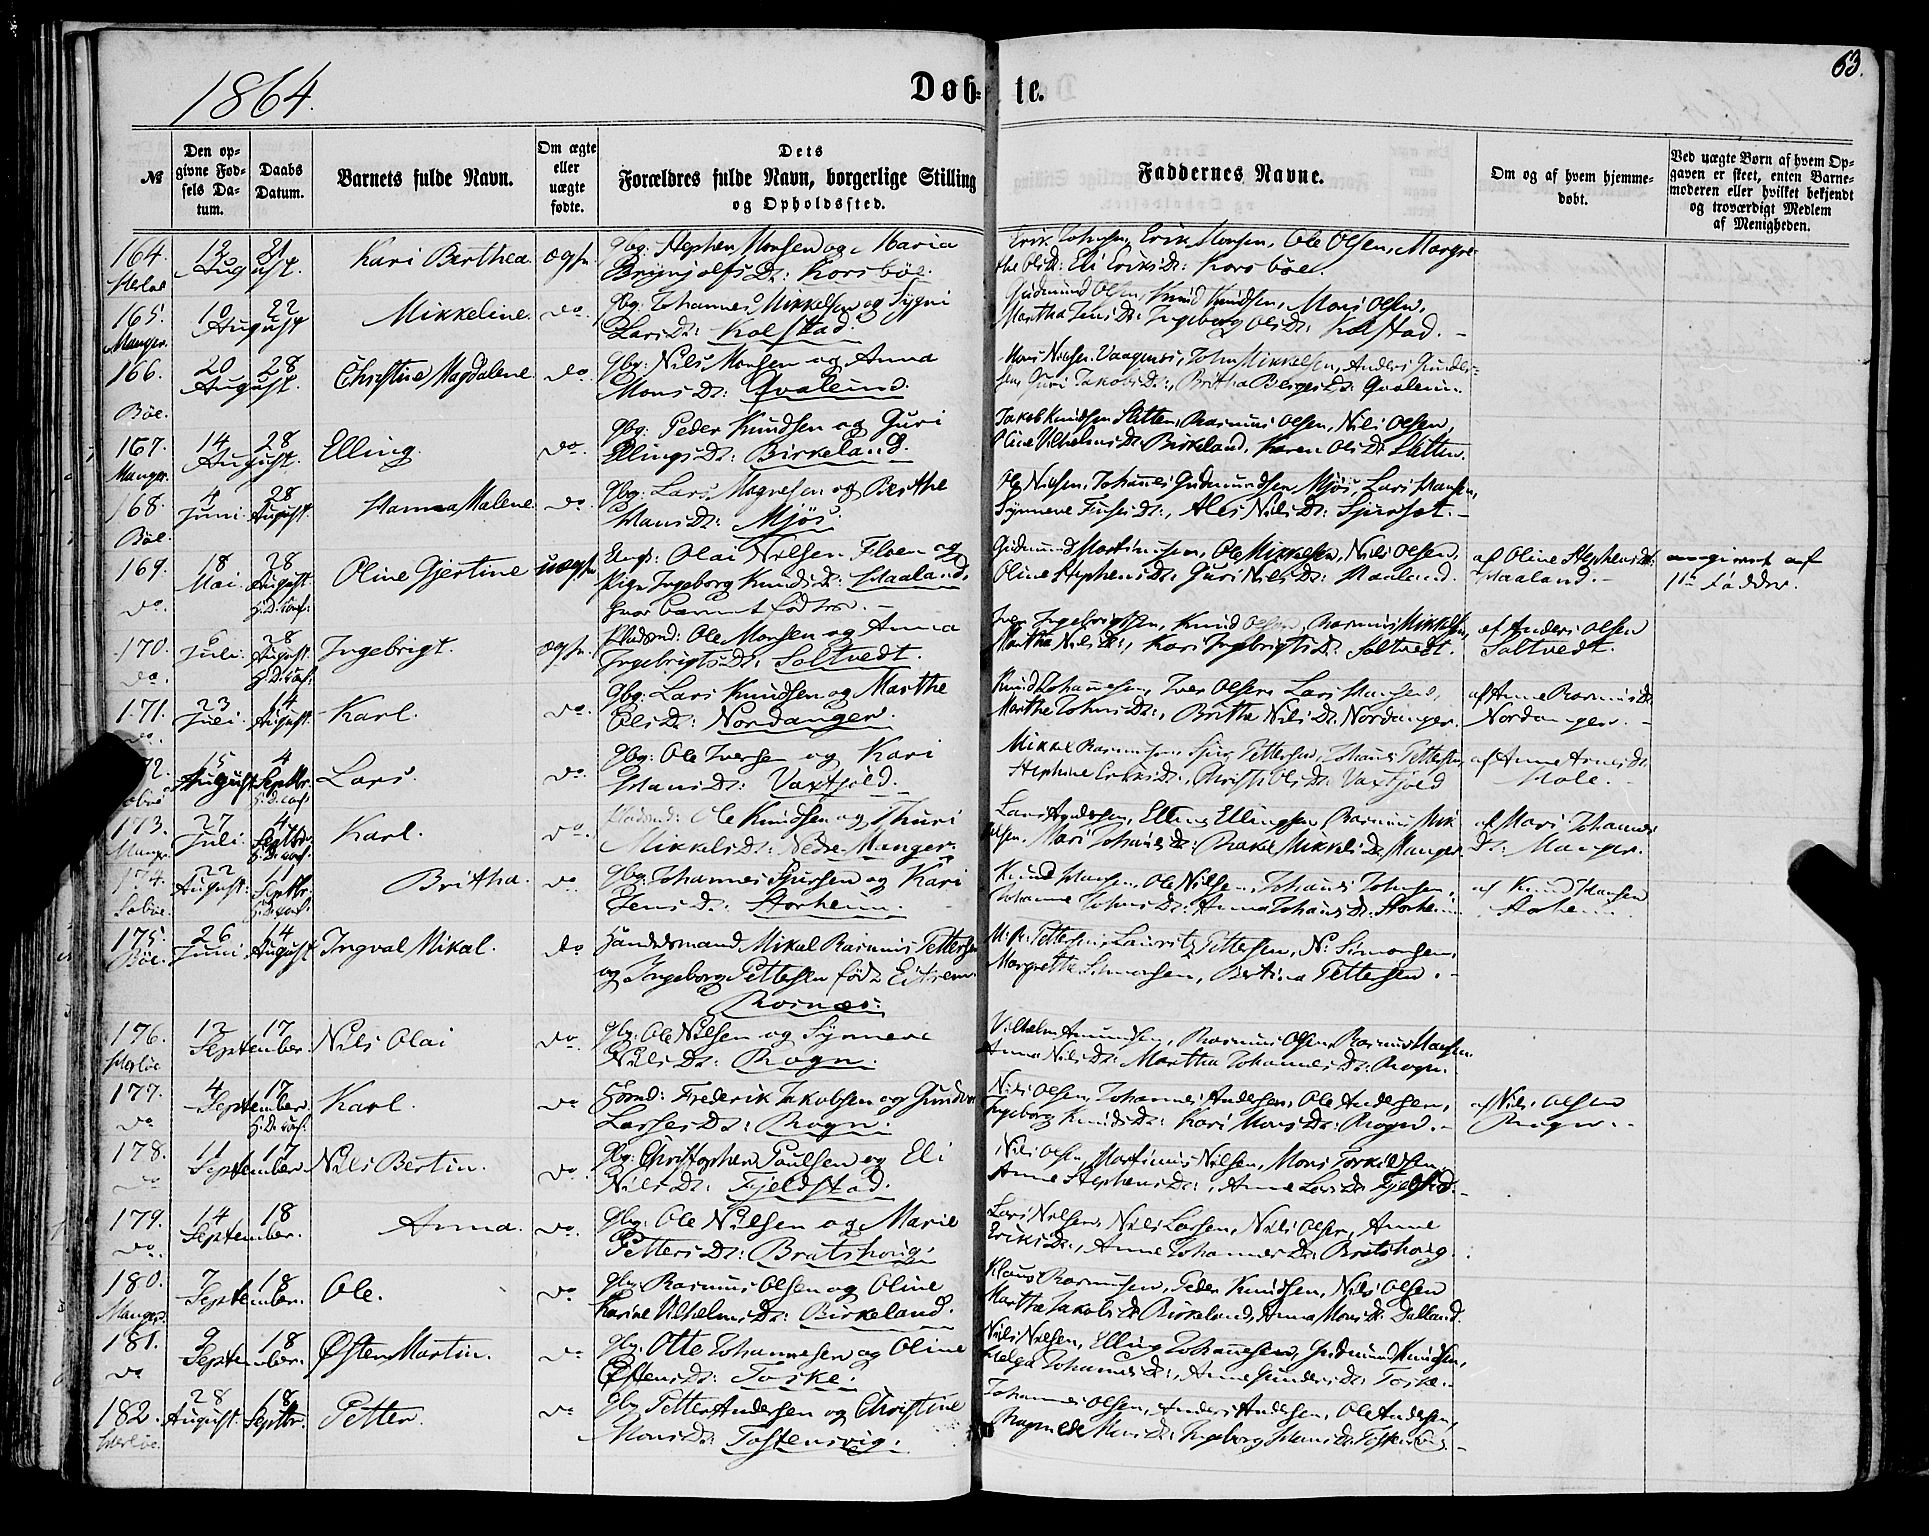 1864.
Døb- te.
63.
№
Den opgivne Fødsels Datum.
Daabs Datum.
Barnets fulde Navn.
Om ægte eller uægte fødte.
Dets
Forældres fulde Navn, borgerlige Stilling
og Opholdssted.
Faddernes Navne.
Om og af hvem hjemmedøbt.
Ved uægte Børn af hvem Opgaven er skeet, enten Barnemoderen eller hvilket bekjendt og troværdigt Medlem af Menigheden.
164. 12 August 21 Kari Berthea. ægte. Gbg: Stephen Monsen og Maria
Brynjolfs Dr: Korsbøe.
Erik Johnsen, Erik Monsen, Ole Olsen, Margre-
the Ols Dr: Eli Eriks Dr: Korsbøe.
165. Manger. 10 August 22 Mikkeline. do. Gbg: Johannes Mikkelsen og Sygni
Lars Dr: Kolstad.
Gudmund Olsen, Knud Knudsen, Mons Olsen,
Martha Jens Dr: Ingeborg Ols Dr: Kolstad.
166. Bøe. 20 August 28 Christine Magdalene do Gbg: Nils Monsen og Anna
Mons Dr:
Mons Nilsen Vaagenes, John Mikkelsen, Anders Gunder-
sen, Guri Jakobs Dr:, Britha Børges Dr:
167. Manger. 14 August 28 Elling. do. Gbg: Peder Knudsen og Guri
Ellings Dr: Birkeland.
Jakob Knudsen Sletten, Rasmus Olsen, Nils Olsen,
Oline Vilhelms Dr: Birkeland, Karen Ols Dr Sletten.
168. Bøe. 4 Juni 28 August. Hanna Malene do. Gbg: Lars Magnesen og Berthe
Hans Dr: Mjøs.
Ole Nilsen, Johannes Gudmundsen Mjøs, Lars Hansen,
Synneve Dr:, Ales Nils Dr:
169. do. 18 Mai 28 August. Oline Gjertine uægte Ungk: Olai Nilsen Floen og
Pige Ingeborg Knuds Dr: Haaland,
hvor barnet fødtes.
Gudmund Martinusen, Ole Mikkelsen, Nils Olsen,
Oline Stephens Dr: Guri Nils Dr: Haaland.
af Oline Stephens Dr:
Haaland.
angivet af
1te Fadder.
170. do. 6 Juli 28 August. Ingebrigt. ægte. Pladsmd: Ole Monsen og Anna
Ingebrigts Dr: Soltvedt.
Iver Ingebrigtsen, Knud Olsen, Rasmus Mikkelsen,
Martha Nils Dr:, Kari Ingebrigts Dr Soltvedt.
af Anders Olsen
Soltvedt.
171. 23 Juli 14 August. Karl. do. Gbg: Lars Knudsen og Marthe
Ols Dr: Nordanger.
Knud Johannesen, Iver Olsen, Lars Hansen,
Marthe Johns Dr:, Britha Nils Dr Nordanger.
af Anne Rasmus Dr
Nordanger.
15 August 4 Septbr. Lars. do. Gbg: Ole Iversen og Kari
Hans Dr: Vaxtfjold.
Mikkel Rasmussen, Sjur Pettersen, Johannes Pettersen,
Stephine Eriks Dr:, Christi Ols Dr: Vaxtfjold
af Anne Arnes Dr
173. Manger. 27 Juli 4 Septbr. Karl. do. Pladsmd: Ole Knudsen og Thuri
Mikkels Dr: Nedre Manger.
Lars Andersen, Elling Ellingsen, Rasmus Mik
kelsen, Mari Johannes Dr: Rakel Mikkels Dr Manger.
af Mari Johannes
Dr: Manger.
174. Sæbøe. 22 August. 11 Septbr. Britha. do Gbg: Johannes Sjursen og Kari
Jens Dr: Storheim.
Knud Hansen, Ole Nilsen, Johannes Johnsen,
Johanne Johns Dr: Anna Johannes Dr Storheim
af Knud Hansen
Storheim.
175. Bøe. 26 Juni 14 August Ingval Mikal. do Handelsmand Mikal Rasmus Pettersen
og Ingeborg Pettersen født Eitrem.
Rosnæs.
M. R. Pettersen, Lauritz Pettersen, N: Simonsen,
Margrethe Simonsen, Bertina Pettersen.
176. Herløe 13 September. 17 Nils Olai do Gbg: Ole Nilsen og Synneve
Nils Dr: Rogn.
Vilhelm Amundsen, Rasmus Olsen, Rasmus Hansen
Anna Nils Dr: Martha Johannes Dr: Rogn.
177. do 4 September. 17 Karl. do Frederik Jakobsen og Gundvor
Larses Dr: Rogn.
Nils Olsen, Johannes Andersen, Ole Andersen,
Ingeborg Knuds Dr: Kari Mons Dr: Rogn.
af Nils Olsen
Rogn.
178. do 11 September 17 Nils Bertin. do Gbg: Christopher Paulsen og Eli
Nils Dr: Fjeldstad.
Nils Olsen, Martinus Nilsen, Mons Torkildsen,
Anne Stephens Dr:, Anne Lars Dr: Fjeldstad.
179. do. 14 September. 18 Anna. do. Gbg: Ole Nilsen og Marie
Petters Dr: Bratshoug.
Lars Nilsen, Nils Larsen, Nils Olsen, Anne
Eriks Dr:, Anne Johannes Dr: Bratshoug.
180. Manger. 7 September. 18 Ole. do Gbg: Rasmus Olsen og Oline
Karine Vilhelms Dr: Birkeland.
Klaus Rasmussen, Peder Knudsen, Nils Olsen
Martha Jakobs Dr Birkeland, Anna Mons Dr: Dalland.
181. do 9 September. 18 Østen Martin. do Gbg: Otte Johannesen og Oline
Østens Dr: Toske.
Nils Nilsen, Elling Johannesen, Gudmund Knudsen,
Helga Johannes Dr:, Anne Gunders Dr: Toske.
182. Herløe. 28 August. 18 Septbr. Petter. do Gbg: Petter Andersen og Christine
Mons Dr: Tostensvig.
Johannes Olsen, Anders Andersen, Ole Andersen,
Ragnilde Mons Dr: Ingeborg Hans Dr: Tostensvig.